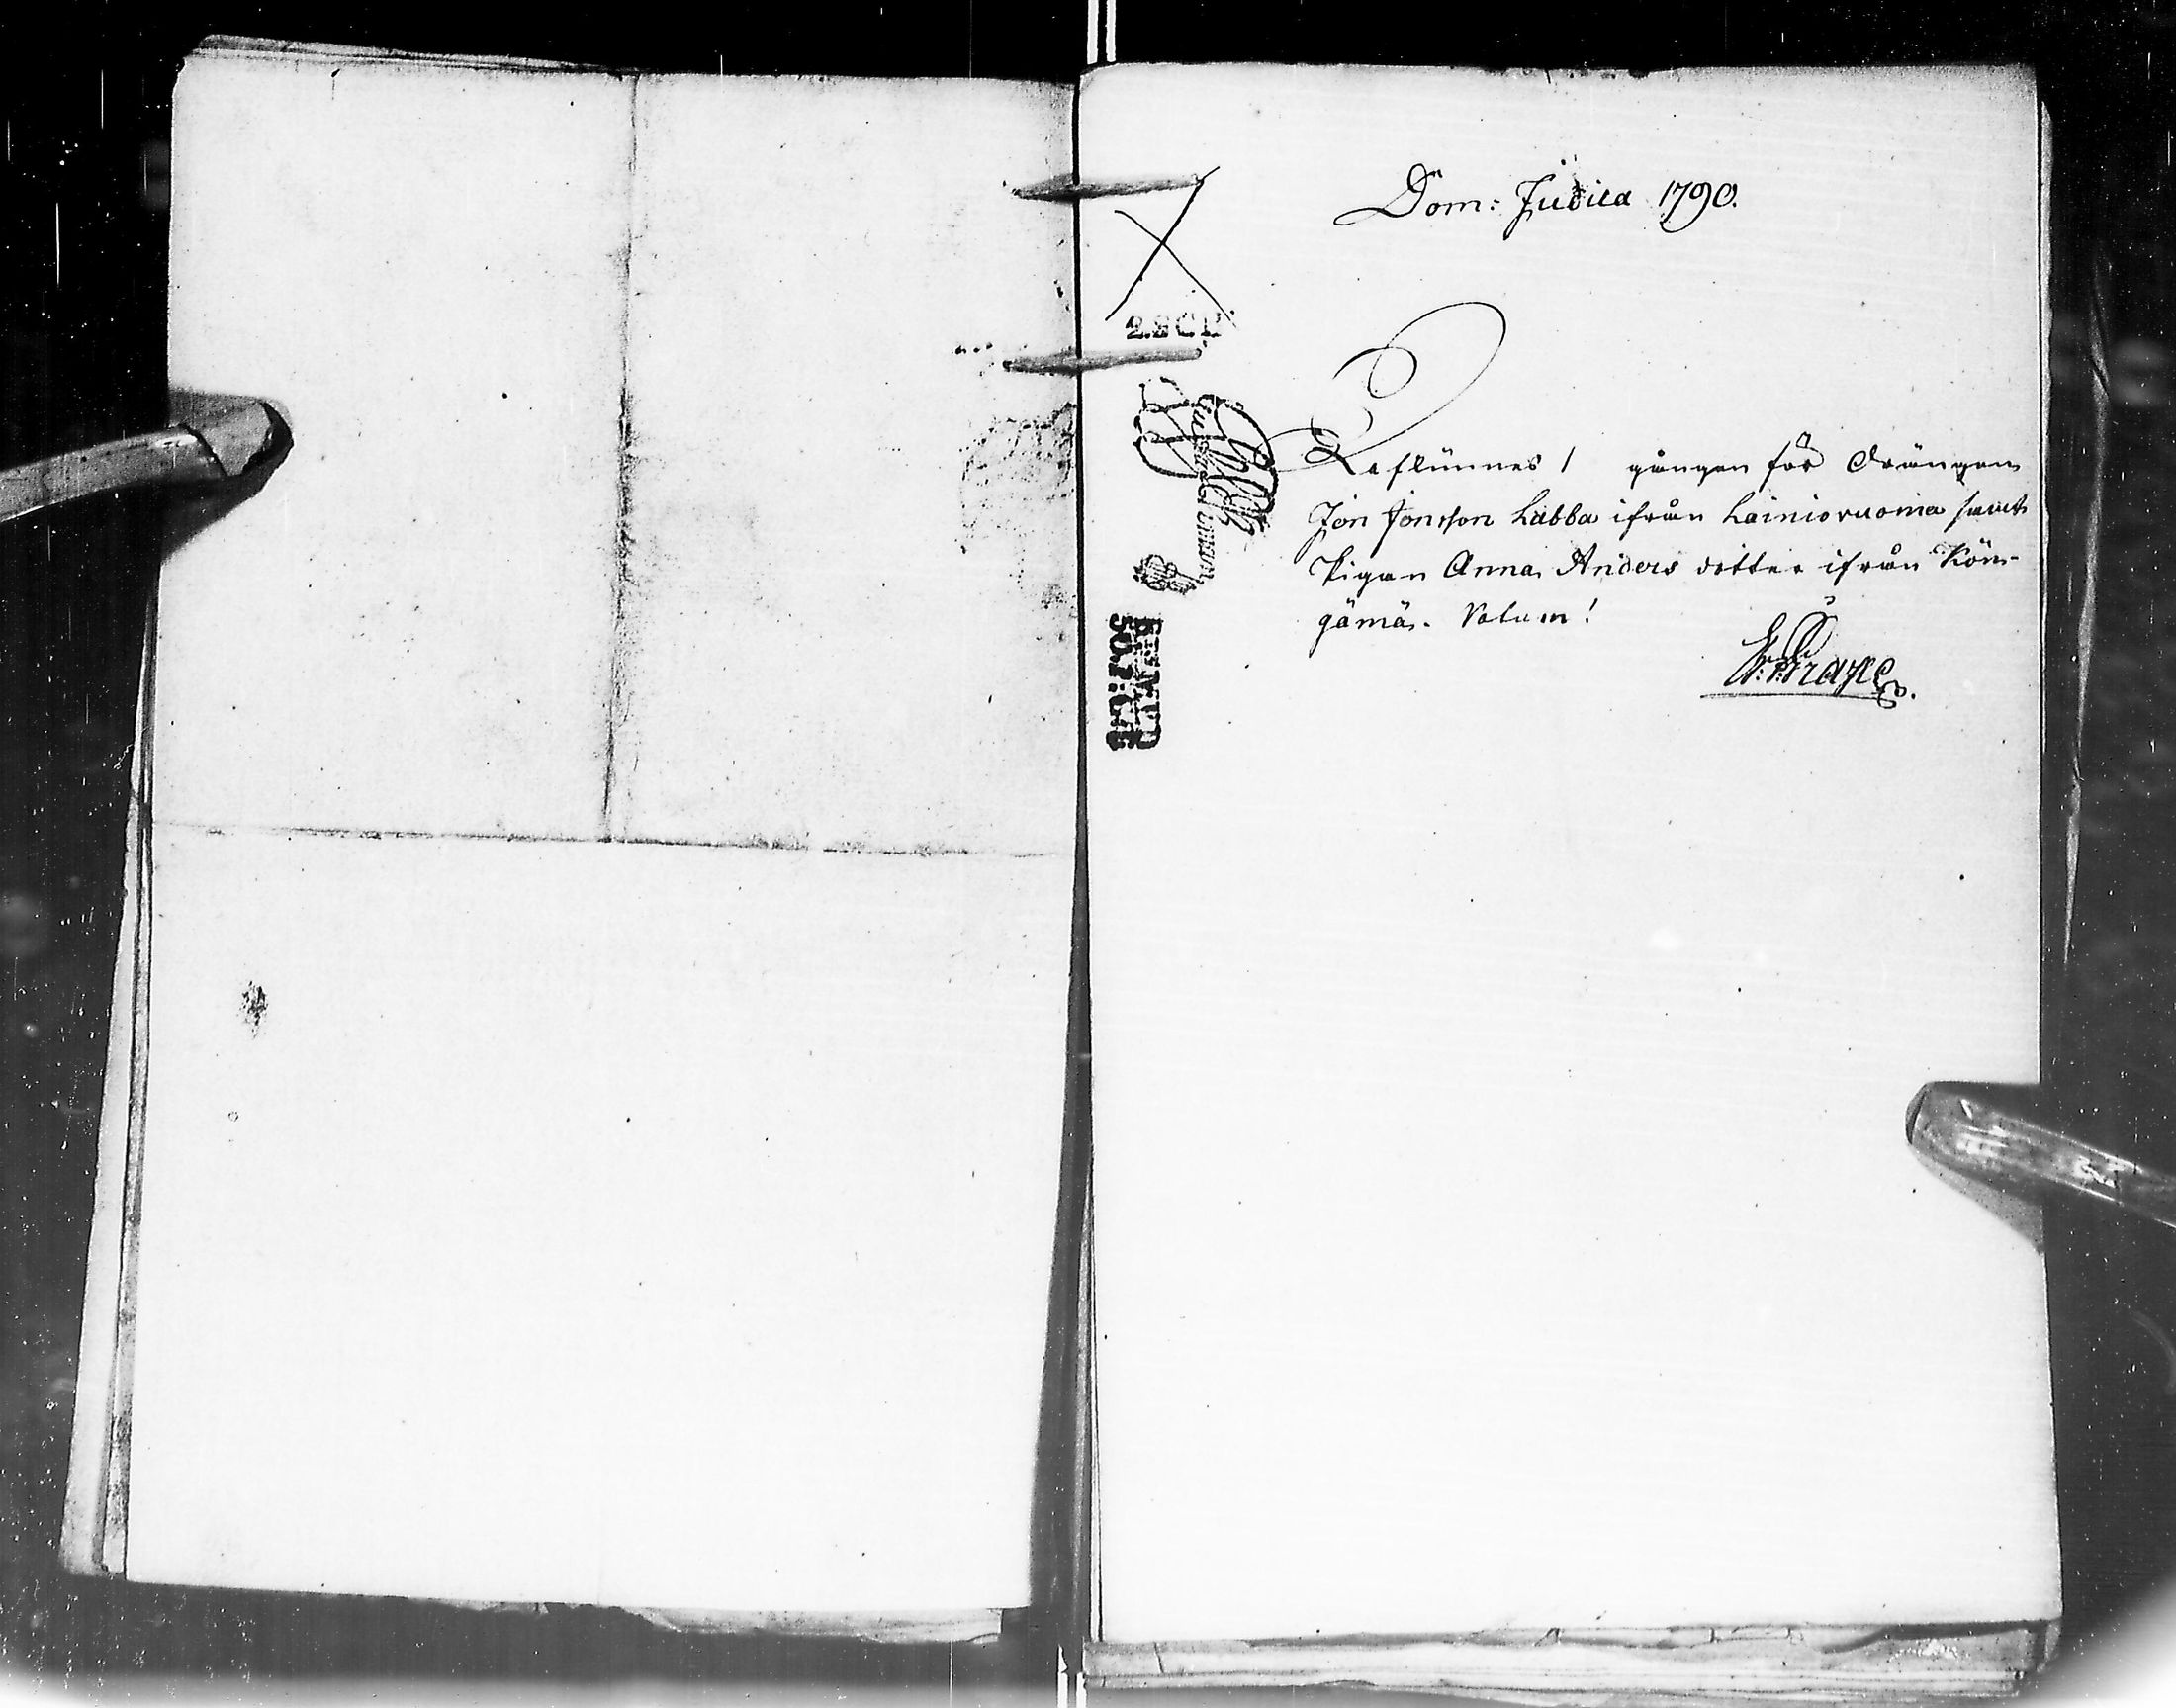 Dom: Judica 1790.
Aflünnes 1 gången för Drängen
Jon Jonsson Labba ifrån Lainiovuoma samt
Pigan Anna Anders dotter ifrån Kön-
gämä. Votum!